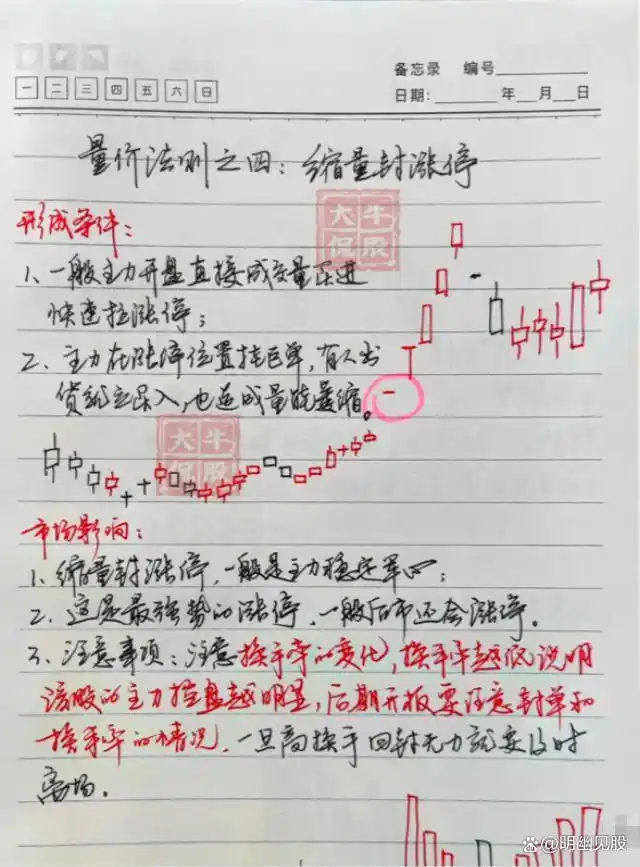 备忘录 编号
一 二 三 四 五 六 日
日期: 年 月 日
量价法则之四：缩量封涨停
大牛
侃股
形成条件：
1、一般主力开盘直接成交量跃进
快速拉涨停；
2、主力在涨停位置挂巨单，有人出
货就立买入，也造成量能萎缩。
大牛
侃股
市场影响：
1、缩量封涨停，一般是主力稳定军心；
2、这是最强势的涨停，一般后市还会涨停。
3、注意事项：注意换手率的变化，换手率越低说明
该股的主力控盘越明显，后期开板要注意封单和
换手率的情况，一旦高换手回封无力就要及时
离场.
@明幽见股